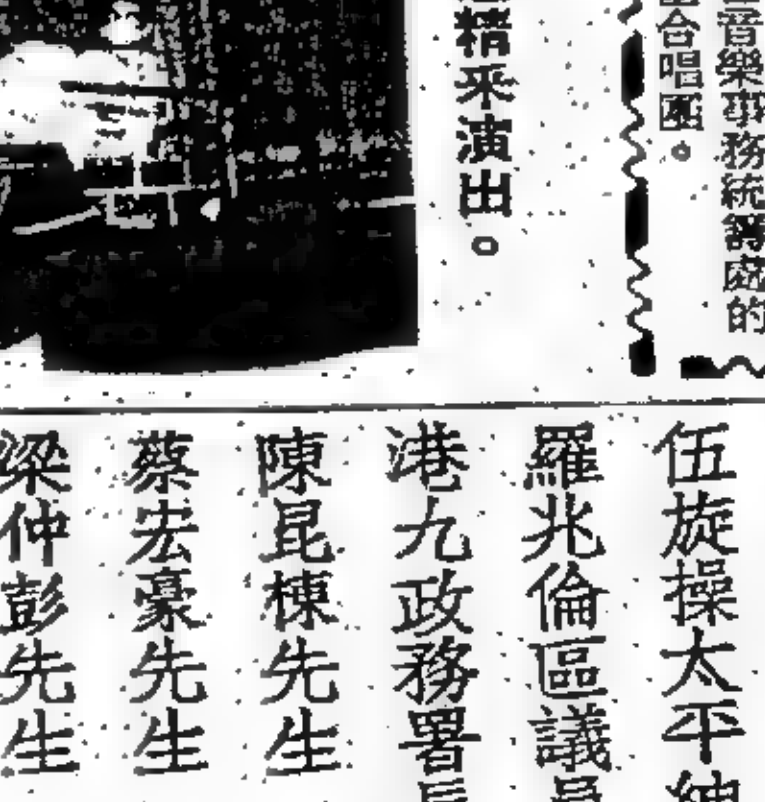 音樂事務統籌處的
合唱團。
精采演出。
伍旋操太平紳
羅兆倫區議員
港九政務署長
陳昆棟先生
蔡宏豪先生
梁仲彭先生